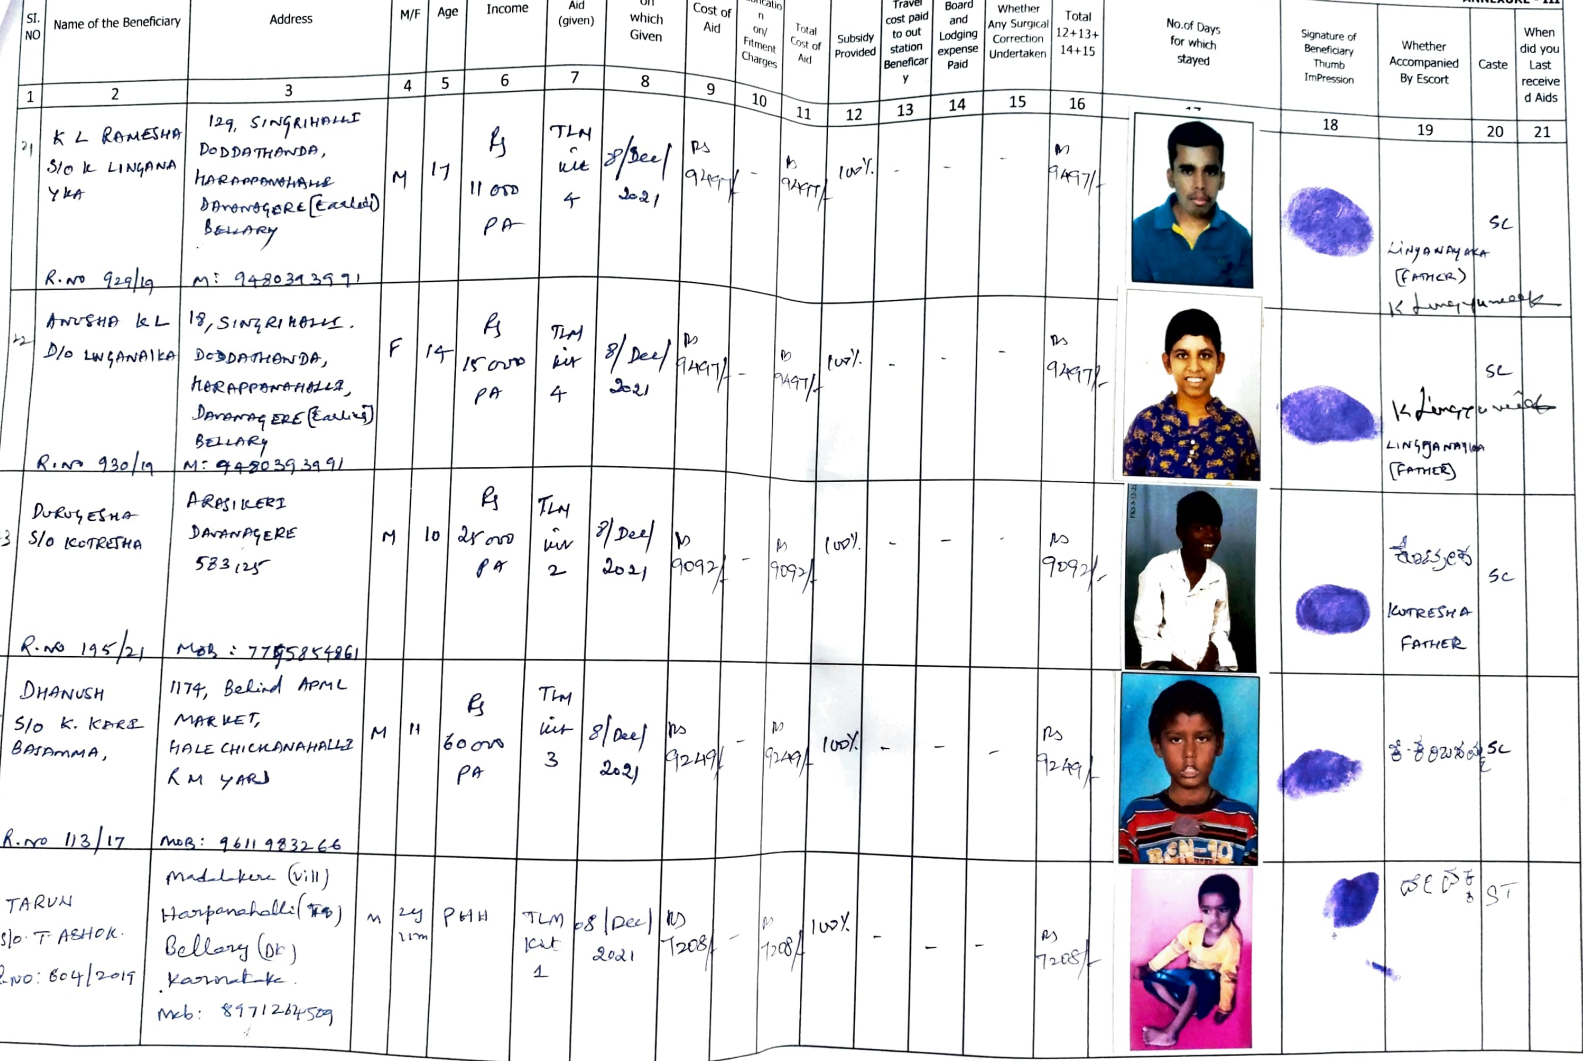 ANNEXURE - III
SI. NO
Name of the Beneficiary
Address
M/F
Age
Income
Aid (given)
on which Given
Cost of Aid
on/ Fitment Charges
Total Cost of Aid
Subsidy Provided
Travel cost paid to out station Beneficiary
Board and Lodging expense Paid
Whether Any Surgical Correction Undertaken
Total 12+13+ 14+15
No.of Days for which stayed
Signature of Beneficiary Thumb ImPression
Whether Accompanied By Escort
Caste
When did you Last receive d Aids
1 2 3 4 5 6 7 8 9 10 11 12 13 14 15 16 17 18 19 20 21
21
K L RAMESHA
S/O K LINGANA
YKA
R.NO 929/19
129, SINGRIHALLI
DODDATHANDA,
HARAPPANAHALLI
DAVANAGERE (Earlier)
BELLARY
M: 9480393991
M
17
Rs
11000
PA
TLM
kit
4
8/Dec/
2021
Rs
9497/-
-
Rs
9497/-
100%
-
-
-
Rs
9497/-
LINGANAYAKA
(FATHER)
SC
22
ANUSHA K L
D/O LINGANAIKA
R.NO 930/19
18, SINGRIHALLI.
DODDATHANDA,
HARAPPANAHALLI,
DAVANAGERE (Earlier)
BELLARY
M: 9480393991
F
14
Rs
15000
PA
TLM
kit
4
8/Dec/
2021
Rs
9497/-
-
Rs
9497/-
100%
-
-
-
Rs
9497/-
(FATHER)
SC
3
DURUGESHA
S/O KOTRESHA
R.NO 195/21
ARASIKERI
DAVANAGERE
583125
MOB : 7795854861
M
10
Rs
25000
PA
TLM
kit
2
8/Dec/
2021
Rs
9092/-
-
Rs
9092/-
100%
-
-
-
Rs
9092/-
ಕೊಟ್ರೇಶ
KOTRESHA
FATHER
SC
DHANUSH
S/O K. KARI
BASAMMA,
R.NO 113/17
1174, Behind APMC
MARKET,
HALE CHICKANAHALLI
R M YARD
MOB: 9611983266
M
11
Rs
60000
PA
TLM
kit
3
8/Dec/
2021
Rs
9249/-
-
Rs
9249/-
100%
-
-
-
Rs
9249/-
ಕೆ. ಕರಿಬಸಮ್ಮ
SC
TARUN
S/O. T ASHOK.
R.NO: 804/2019
Madlkere (Vill)
Harpanahalli (TQ)
Bellary (Dt)
Karnataka.
Mob: 8971264509
M
2y
11m
PHH
TLM
Kit
1
08/Dec/
2021
Rs
7208/-
-
Rs
7208/-
100%
-
-
-
Rs
7208/-
ST